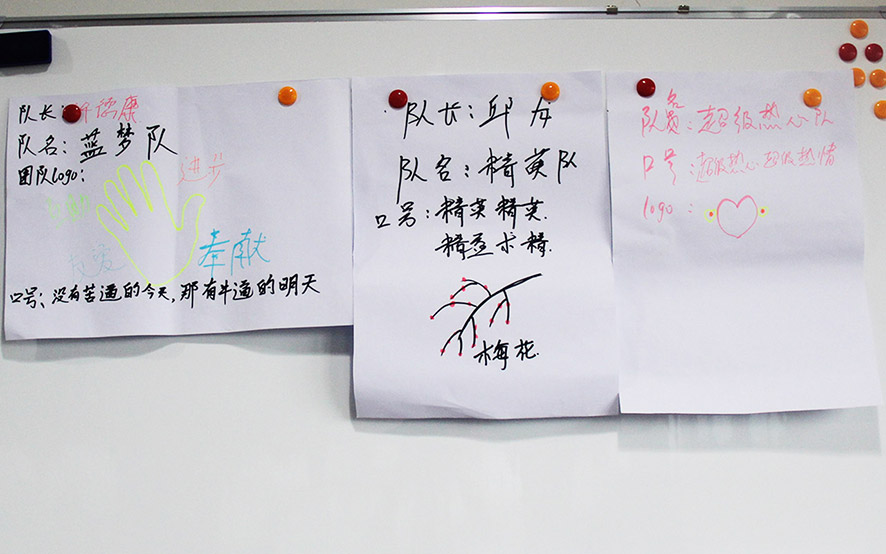 队长:康
队名:蓝梦队
团队logo:
进步
奉献
口号:没有苦逼的今天,那有牛逼的明天
队长:邱龙
队名:精英队
口号:精英精英.
精益求精.
梅花.
名
队员:超级热心队
口号:超级热心超级热情
logo: